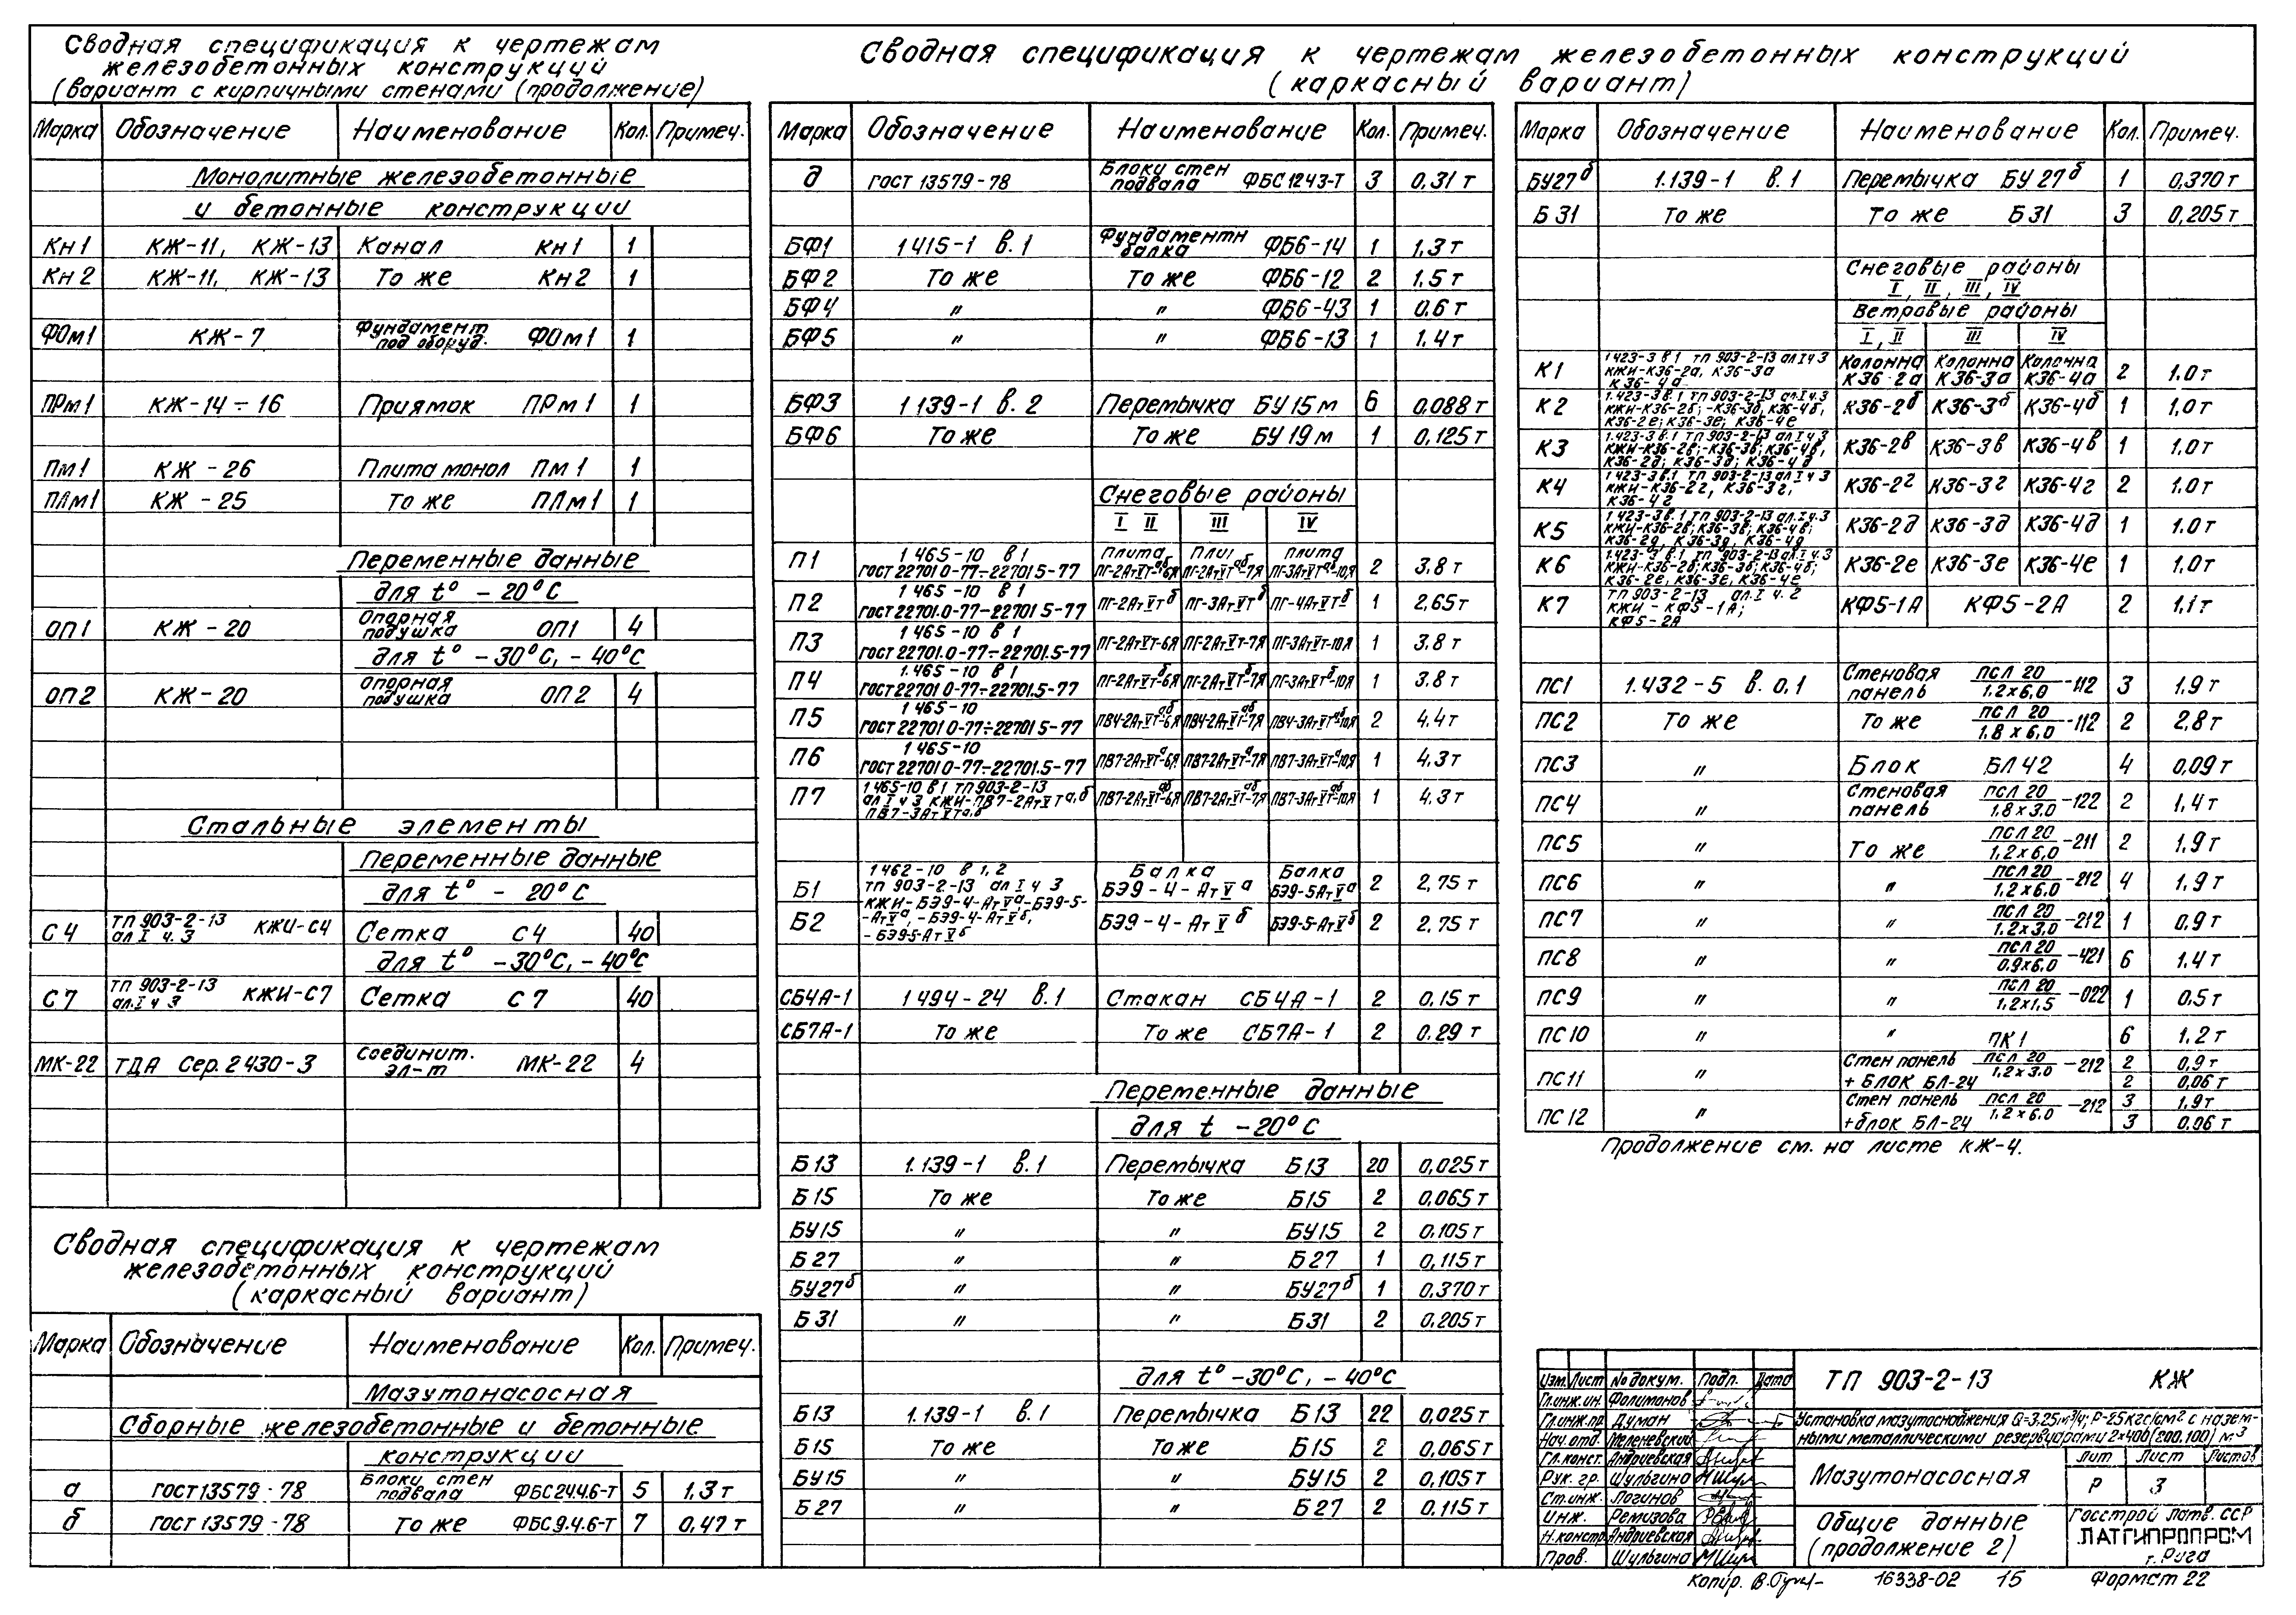 Сводная спецификация к чертежам
железобетонных конструкций
(вариант с кирпичными стенами (продолжение)
Марка Обозначение Наименование Кол. Примеч.
Монолитные железобетонные
и бетонные конструкции
Кн1 КЖ-11, КЖ-13 Канал Кн1 1
Кн2 КЖ-11, КЖ-13 То же Кн2 1
ФОм1 КЖ-7 Фундамент под оборуд. ФОм1 1
ПРм1 КЖ-14÷16 Приямок ПРм1 1
Пм1 КЖ-26 Плита монол Пм1 1
ПЛм1 КЖ-25 То же ПЛм1 1
Переменные данные
для t° -20°С
ОП1 КЖ-20 Опорная подушка ОП1 4
для t° -30°С, -40°С
ОП2 КЖ-20 Опорная подушка ОП2 4
Стальные элементы
Переменные данные
для t° -20°С
С4 ТП 903-2-13 ал I ч.3 КЖИ-С4 Сетка С4 40
для t° -30°С, -40°С
С7 ТП 903-2-13 ал.I ч 3 КЖИ-С7 Сетка С7 40
МК-22 ТДА Сер.2430-3 Соединит. эл-т МК-22 4
Сводная спецификация к чертежам
железобетонных конструкций
(каркасный вариант)
Марка Обозначение Наименование Кол. Примеч.
Мазутонасосная
Сборные железобетонные и бетонные
конструкции
а ГОСТ 13579-78 Блоки стен подвала ФБС24.4.6-Т 5 1,3 т
б ГОСТ 13579-78 То же ФБС9.4.6-Т 7 0,47 т
Сводная спецификация к чертежам железобетонных конструкций
(каркасный вариант)
Марка Обозначение Наименование Кол. Примеч.
д ГОСТ 13579-78 Блоки стен подвала ФБС1243-Т 3 0,31 т
БФ1 1415-1 в.1 Фундаментн балка ФБ6-14 1 1,3 т
БФ2 То же То же ФБ6-12 2 1,5 т
БФ4 " " ФБ6-43 1 0,6 т
БФ5 " " ФБ6-13 1 1,4 т
БФ3 1139-1 в.2 Перемычка БУ15м 6 0,088 т
БФ6 То же То же БУ19м 1 0,125 т
Снеговые районы
I II III IV
П1 1465-10 в1 ГОСТ 22701 0-77÷22701 5-77 Плита ПГ-2АтVТаб-6Я Плит ПГ-2АтVТаб-7Я плита ПГ-3АтVТаб-10Я 2 3,8 т
П2 1465-10 в1 ГОСТ 22701.0-77÷22701.5-77 ПГ-2АтVТб ПГ-3АтVТб ПГ-4АтVТб 1 2,65 т
П3 1465-10 в1 ГОСТ 22701.0-77÷22701.5-77 ПГ-2АтVТ-6Я ПГ-2АтVТ-7Я ПГ-3АтVТ-10Я 1 3.8 т
П4 1.465-10 в1 ГОСТ 22701 0-77÷22701.5-77 ПГ-2АтVТб-6Я ПГ-2АтVТб-7Я ПГ-3АтVТб-10Я 1 3.8 т
П5 1465-10 ГОСТ 22701 0-77÷22701 5-77 ПВ4-2АтVТаб-6Я ПВ4-2АтVТаб-7Я ПВ4-3АтVТаб-10Я 2 4,4 т
П6 1465-10 ГОСТ 22701 0-77÷22701.5-77 ПВ7-2АтVТа-6Я ПВ7-2АтVТа-7Я ПВ7-3АтVТа-10Я 1 4,3 т
П7 1465-10 в1 ТП 903-2-13 ал I ч 3 КЖИ-ПВ7-2АтVТа,б ПВ7-3АтVТа,б ПВ7-2АтVТаб-6Я ПВ7-2АтVТаб-7Я ПВ7-3АтVТаб-10Я 1 4,3 т
1462-10 в 1,2
ТП 903-2-13 ал I ч 3
КЖИ-БЭ9-4-АтVа,-БЭ9-5-
-АтVа, -БЭ9-4-АтVб,
-БЭ9-5-АтVб
Б1 Балка БЭ9-4-АтVа Балка БЭ9-5АтVа 2 2,75 т
Б2 БЭ9-4-АтVб БЭ9-5-АтVб 2 2,75 т
СБ4А-1 1494-24 в.1 Стакан СБ4А-1 2 0,15 т
СБ7А-1 То же То же СБ7А-1 2 0.29 т
Переменные данные
для t -20°С
Б13 1.139-1 в.1 Перемычка Б13 20 0,025 т
Б15 То же То же Б15 2 0,065 т
БУ15 " " БУ15 2 0,105 т
Б27 " " Б27 1 0,115 т
БУ27б " " БУ27б 1 0,370 т
Б31 " " Б31 2 0,205 т
для t° -30°С, -40°С
Б13 1.139-1 в.1 Перемычка Б13 22 0,025 т
Б15 То же То же Б15 2 0,065 т
БУ15 " " БУ15 2 0,105 т
Б27 " " Б27 2 0,115 т
Марка Обозначение Наименование Кол. Примеч.
БУ27б 1.139-1 в.1 Перемычка БУ27б 1 0,370 т
Б31 То же То же Б31 3 0,205 т
Снеговые районы
I, II, III, IV
Ветровые районы
I, II III IV
К1 1423-3 в1 ТП 903-2-13 ал I ч 3 КЖИ-К36-2а, К36-3а К36-4а Колонна К36-2а Колонна К36-3а Колонна К36-4а 2 1.0 т
К2 1.423-3 в.1 ТП 903-2-13 ал.I ч.3 КЖИ-К36-2б; -К36-3б, К36-4б, К36-2е; К36-3е; К36-4е К36-2б К36-3б К36-4б 1 1,0 т
К3 1.423-3 в.1 ТП 903-2-13 ал I ч 3 КЖИ-К36-2в; -К36-3в; К36-4в, К36-2д; К36-3д; К36-4д К36-2в К36-3в К36-4в 1 1.0 т
К4 1423-3 в.1 ТП 903-2-13 ал I ч 3 КЖИ-К36-2г, К36-3г, К36-4г К36-2г К36-3г К36-4г 2 1.0 т
К5 1423-3 в.1 ТП 903-2-13 ал.I ч.3 КЖИ-К36-2в; К36-3в; К36-4в; К36-2д, К36-3д, К36-4д К36-2д К36-3д К36-4д 1 1.0 т
К6 1.423-3 в.1 ТП 903-2-13 ал I ч 3 КЖИ-К36-2б; К36-3б; К36-4б; К36-2е, К36-3е, К36-4е К36-2е К36-3е К36-4е 1 1.0 т
К7 ТП 903-2-13 ал.I ч.2 КЖИ-КФ5-1А; КФ5-2А КФ5-1А КФ5-2А 2 1,1 т
ПС1 1.432-5 в.0,1 Стеновая панель ПСЛ 20/1,2х6,0-112 3 1,9 т
ПС2 То же То же ПСЛ 20/1,8х6,0-112 2 2,8 т
ПС3 " Блок БЛ42 4 0,09 т
ПС4 " Стеновая панель ПСЛ 20/1,8х3,0-122 2 1,4 т
ПС5 " То же ПСЛ 20/1,2х6,0-211 2 1,9 т
ПС6 " " ПСЛ 20/1,2х6,0-212 4 1,9 т
ПС7 " " ПСЛ 20/1,2х3,0-212 1 0,9 т
ПС8 " " ПСЛ 20/0,9х6,0-421 6 1.4 т
ПС9 " " ПСЛ 20/1,2х1,5-022 1 0,5 т
ПС10 " " ПК1 6 1,2 т
ПС11 " Стен панель ПСЛ 20/1,2х3.0-212 2 0,9 т
+ блок БЛ-24 2 0,06 т
ПС12 " Стен панель ПСЛ 20/1,2х6,0-212 3 1,9 т
+ блок БЛ-24 3 0,06 т
Продолжение см. на листе КЖ-4.
Изм. Лист № докум. Подп. Дата
Гл.инж.ин. Филимонов
Гл.инж.пр. Думан
Нач.отд. Меленевский
Гл.конст. Андриевская
Рук. гр. Шульгина
Ст.инж. Логинов
Инж. Ремизова
Н.констр. Андриевская
Пров. Шульгина
ТП 903-2-13 КЖ
Установка мазутоснабжения Q=3,25м³/ч; Р=25кгс/см² с назем-
ными металлическими резервуарами 2х400(200,100) м³
Мазутонасосная
Лит Лист Листов
Р 3
Общие данные
(продолжение 2)
Госстрой Латв. ССР
ЛАТГИПРОПРОМ
г. Рига
Копир. 16338-02 15 Формат 22